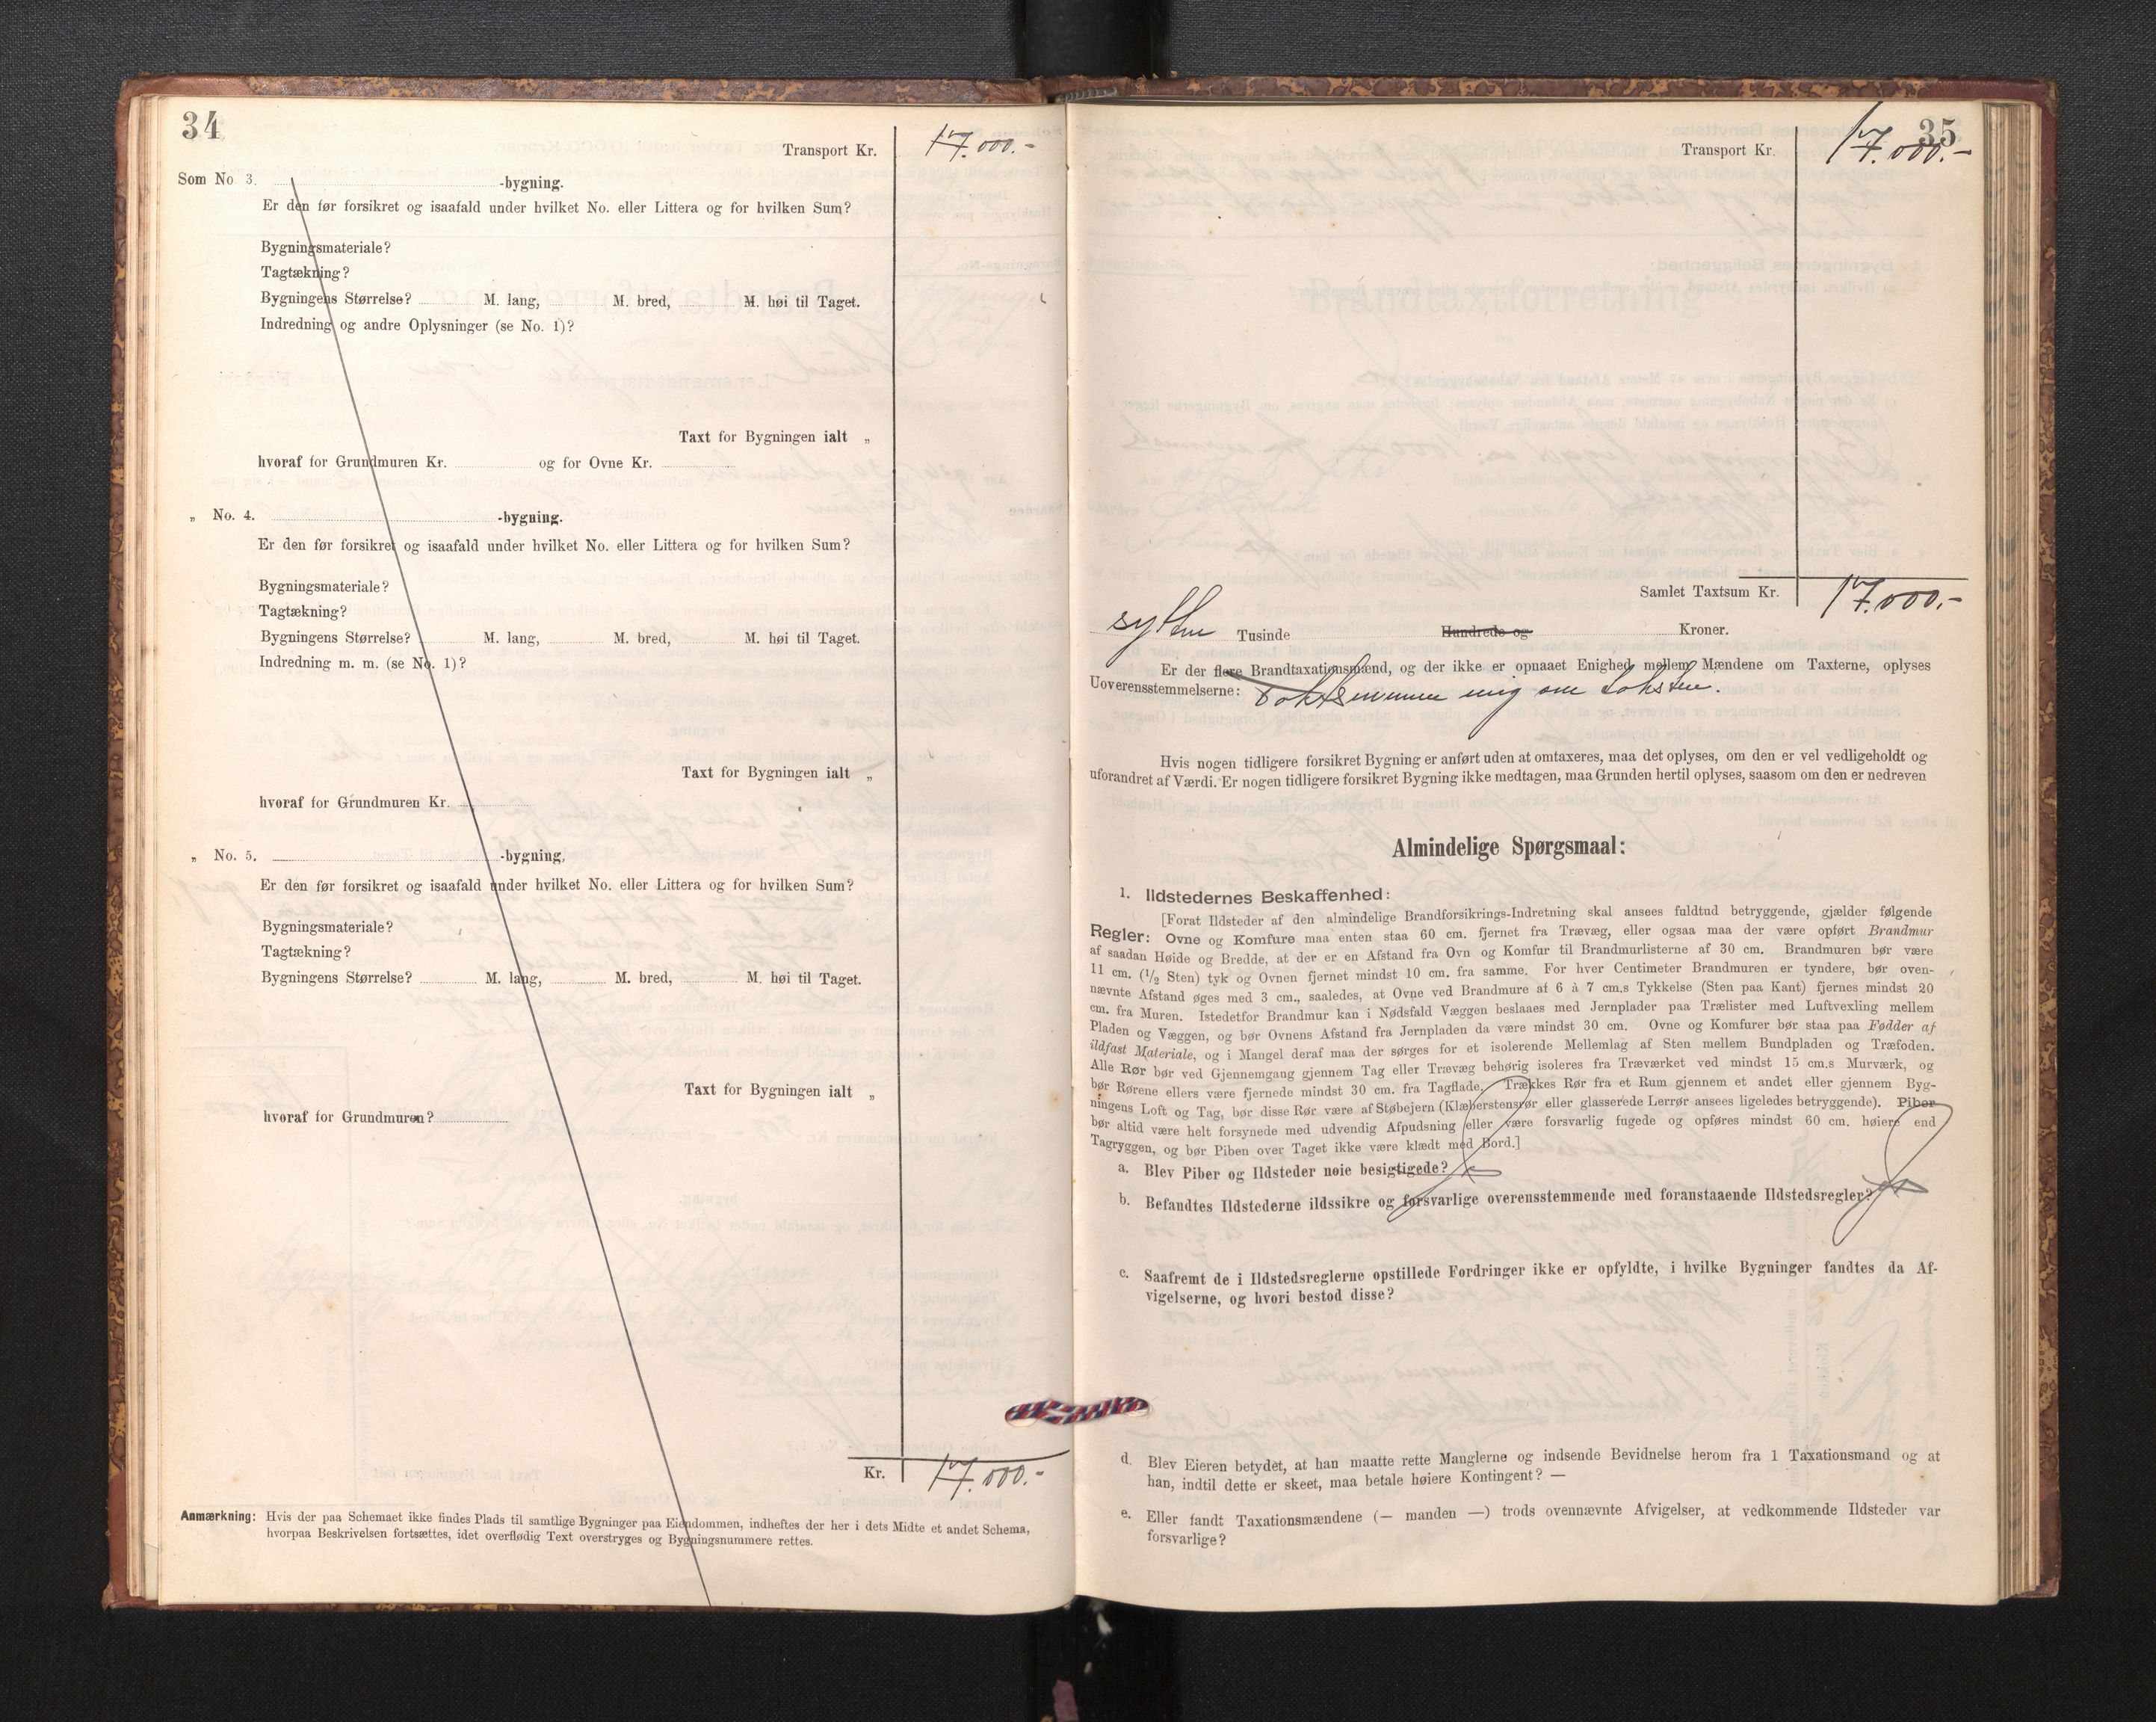 34
Transport Kr. 17.000.-
Som No 3. -bygning.
Er den før forsikret og isaafald under hvilket No. eller Littera og for hvilken Sum?
Bygningsmateriale?
Tagtækning?
Bygningens Størrelse? M. lang, M. bred, M. høi til Taget.
Indredning og andre Oplysninger (se No. 1)?
Taxt for Bygningen ialt „
hvoraf for Grundmuren Kr. og for Ovne Kr.
„ No. 4. -bygning.
Er den før forsikret og isaafald under hvilket No. eller Littera og for hvilken Sum?
Bygningsmateriale?
Tagtækning?
Bygningens Størrelse? M. lang, M. bred, M. høi til Taget.
Indredning m. m. (se No. 1)?
Taxt for Bygningen ialt „
hvoraf for Grundmuren Kr.
„ No. 5. -bygning,
Er den før forsikret og isaafald under hvilket No. eller Littera og for hvilken Sum?
Bygningsmateriale?
Tagtækning?
Bygningens Størrelse? M. lang, M. bred, M. høi til Taget.
Taxt for Bygningen ialt „
hvoraf for Grundmuren?
Kr. 17.000.-
Anmærkning: Hvis der paa Schemaet ikke findes Plads til samtlige Bygninger paa Eiendommen, indheftes der her i dets Midte et andet Schema,
hvorpaa Beskrivelsen fortsættes, idet overflødig Text overstryges og Bygningsnummere rettes.
35
Transport Kr. 17.000.-
Samlet Taxtsum Kr. 17.000.-
sytten Tusinde Hundrede og Kroner.
Er der flere Brandtaxationsmænd, og der ikke er opnaaet Enighed mellem Mændene om Taxterne, oplyses
Uoverensstemmelserne: Takstmennene enig om taksten.
Hvis nogen tidligere forsikret Bygning er anført uden at omtaxeres, maa det oplyses, om den er vel vedligeholdt og
uforandret af Værdi. Er nogen tidligere forsikret Bygning ikke medtagen, maa Grunden hertil oplyses, saasom om den er nedreven
Almindelige Spørgsmaal:
1. Ildstedernes Beskaffenhed:
[Forat Ildsteder af den almindelige Brandforsikrings-Indretning skal ansees fuldtud betryggende, gjælder følgende
Regler: Ovne og Komfure maa enten staa 60 cm. fjernet fra Trævæg, eller ogsaa maa der være opført Brandmur
af saadan Høide og Bredde, at der er en Afstand fra Ovn og Komfur til Brandmurlisterne af 30 cm. Brandmuren bør være
11 cm. (1/2 Sten) tyk og Ovnen fjernet mindst 10 cm. fra samme. For hver Centimeter Brandmuren er tyndere, bør oven-
nævnte Afstand øges med 3 cm., saaledes, at Ovne ved Brandmure af 6 à 7 cm.s Tykkelse (Sten paa Kant) fjernes mindst 20
cm. fra Muren. Istedetfor Brandmur kan i Nødsfald Væggen beslaaes med Jernplader paa Trælister med Luftvexling mellem
Pladen og Væggen, og bør Ovnens Afstand fra Jernpladen da være mindst 30 cm. Ovne og Komfurer bør staa paa Fødder af
ildfast Materiale, og i Mangel deraf maa der sørges for et isolerende Mellemlag af Sten mellem Bundpladen og Træfoden.
Alle Rør bør ved Gjennemgang gjennem Tag eller Trævæg behørig isoleres fra Træværket ved mindst 15 cm.s Murværk, og
bør Rørene ellers være fjernede mindst 30 cm. fra Tagflade. Trækkes Rør fra et Rum gjennem et andet eller gjennem Byg-
ningens Loft og Tag, bør disse Rør være af Støbejern (Klæberstensrør eller glasserede Lerrør ansees ligeledes betryggende). Piber
bør altid være helt forsynede med udvendig Afpudsning eller være forsvarlig fugede og opføres mindst 60 cm. høiere end
Tagryggen, og bør Piben over Taget ikke være klædt med Bord.]
a. Blev Piber og Ildsteder nøie besigtigede? Ja
b. Befandtes Ildstederne ildssikre og forsvarlige overensstemmende med foranstaaende Ildstedsregler? Ja
c. Saafremt de i Ildstedsreglerne opstillede Fordringer ikke er opfyldte, i hvilke Bygninger fandtes da Af-
vigelserne, og hvori bestod disse?
d. Blev Eieren betydet, at han maatte rette Manglerne og indsende Bevidnelse herom fra 1 Taxationsmand og at
han, indtil dette er skeet, maa betale høiere Kontingent? —
e. Eller fandt Taxationsmændene (— manden —) trods ovennævnte Afvigelser, at vedkommende Ildsteder var
forsvarlige?